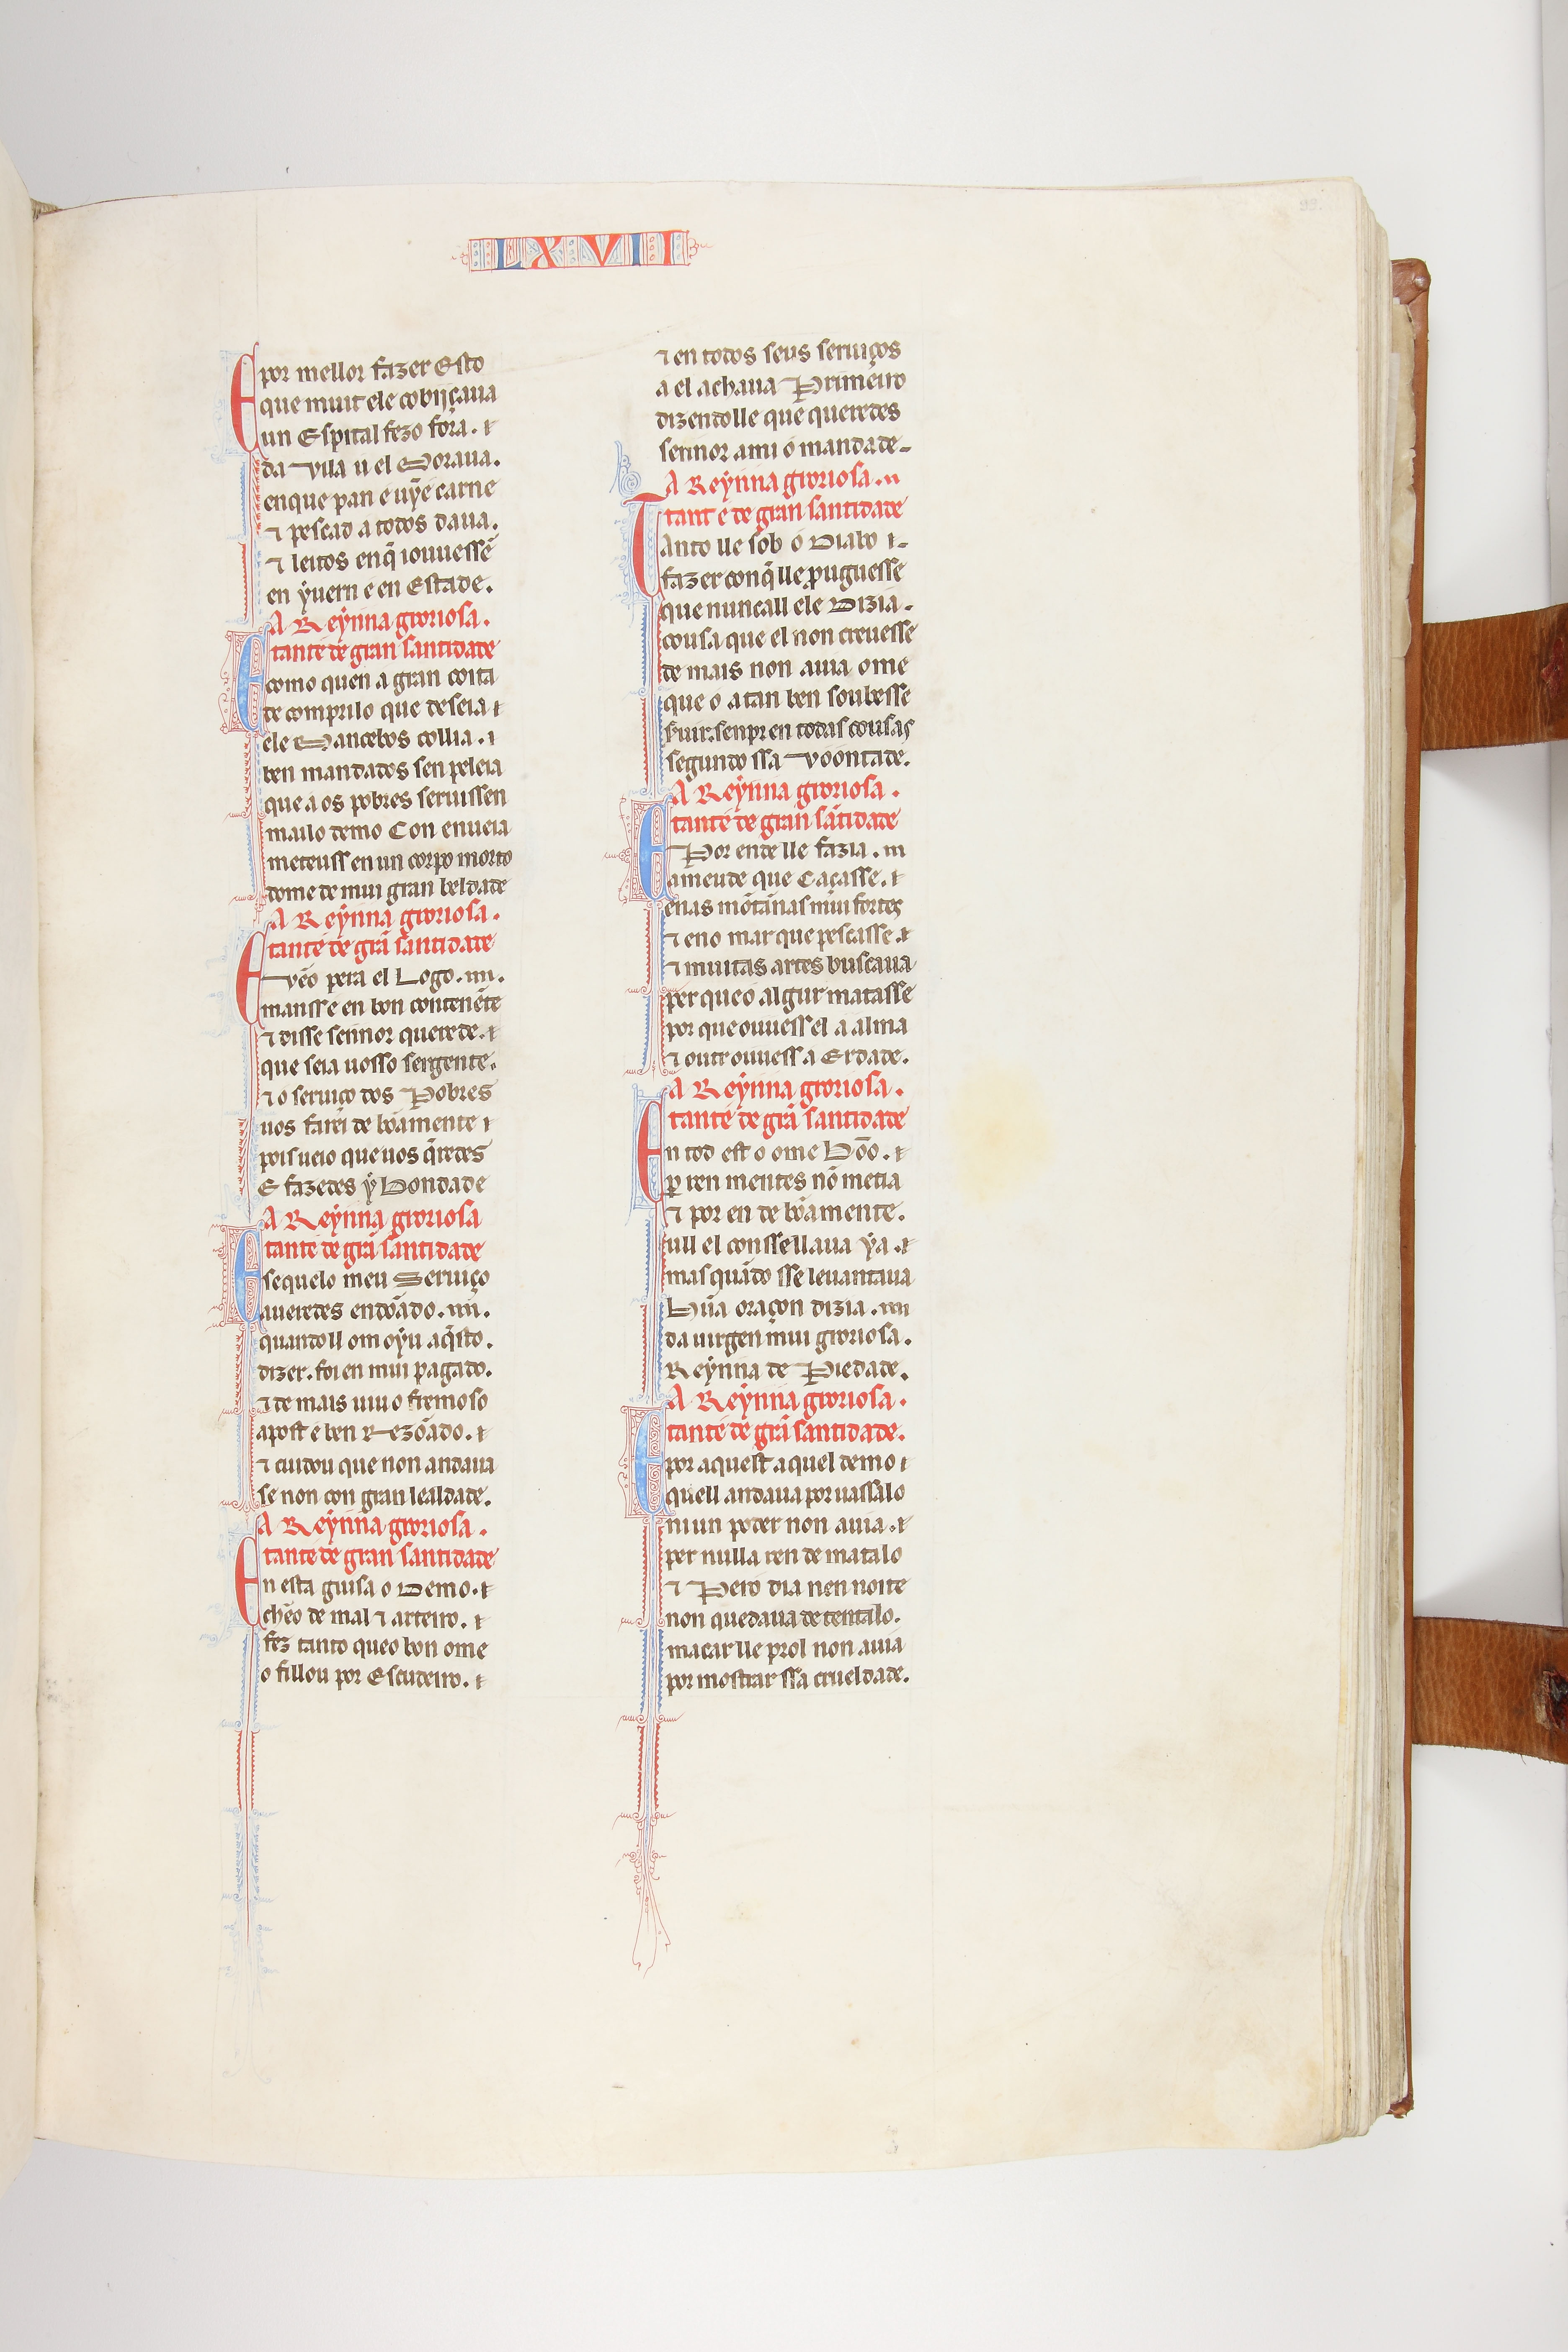 LXVII
E por mellor fazer Esto
que muit ele cobijçaua
un Espital fezo fora.
da vila u el Moraua.
en que pan e uỹ e carne
⁊ pescad a todos daua.
⁊ leitos en q̃ iouuessẽ
en ẏuern e en Estade.
A Reẏnna groriosa.
tant é de gran santidade
E como quen a gran coita
de comprilo que deseia
ele Mancebos collia.
ben mandados sen peleia
que a os pobres seruissen
mailo demo Con enueia
meteuss en un corpo morto
dome de mui gran beldade
A Reẏnna groriosa.
tant é de grã santidade
E vẽo pera el Logo.
mansse en bon contenẽte
⁊ disse sennor querede.
que seia uosso sergente.
⁊ o seruiço dos Pobres
uos farei de bõamente
pois ueio que uos q̃redes
E fazedes ẏ Bondade
A Reẏnna groriosa
tant é de grã santidade
E sequelo meu Seruiço
aueredes endõado.
quando ll om oẏu aq̃sto.
dizer. foi en mui pagado.
⁊ de mais uiuo fremoso
apost e ben Rezõado.
⁊ cuidou que non andaua
se non con gran lealdade.
A Reẏnna groriosa.
tant é de gran santidade
En esta guisa o Demo.
chẽo de mal ⁊ arteiro.
fez tanto queo bon ome
o fillou por Escudeiro.
⁊ en todos seus seruiços
a el achaua Primeiro
dizendolle que queredes
sennor ami o mandade
A Reẏnna groriosa.
tant e de gran santidade
Tanto lle sob o Diabo
fazer con q̃ lle prouguesse
que nuncall ele Dizia.
cousa que el non creuesse
de mais non auia ome
que o atan ben soubesse
seruir. senpr en todas cousas
segundo ssa voontade.
A Reẏnna groriosa.
tant é de gran sãtidade
E Por ende lle fazia.
ameude que Caçasse.
enas mõtãnas mui fortes
⁊ eno mar que pescasse.
⁊ muitas artes buscaua
per que o algur matasse
por que ouuess el a alma
⁊ outr ouuess a Erdade.
A Reẏnna groriosa.
tant é de grã santidade
En tod est o ome Bõo.
per ren mentes nõ metia
⁊ por en de bõamente.
u ll el conssellaua ẏa.
mas quãdo sse leuantaua
Hũa oraçon dizia.
da uirgen mui groriosa.
Reẏnna de Piedade.
A Reẏnna groriosa.
tant é de grã santidade.
E por aquest aquel demo
quell andaua por uassalo
niun poder non auia.
per nulla ren de matalo
⁊ Pero dia nen noite
non quedaua de tentalo.
macar lle prol non auia
por mostrar ssa crueldade.